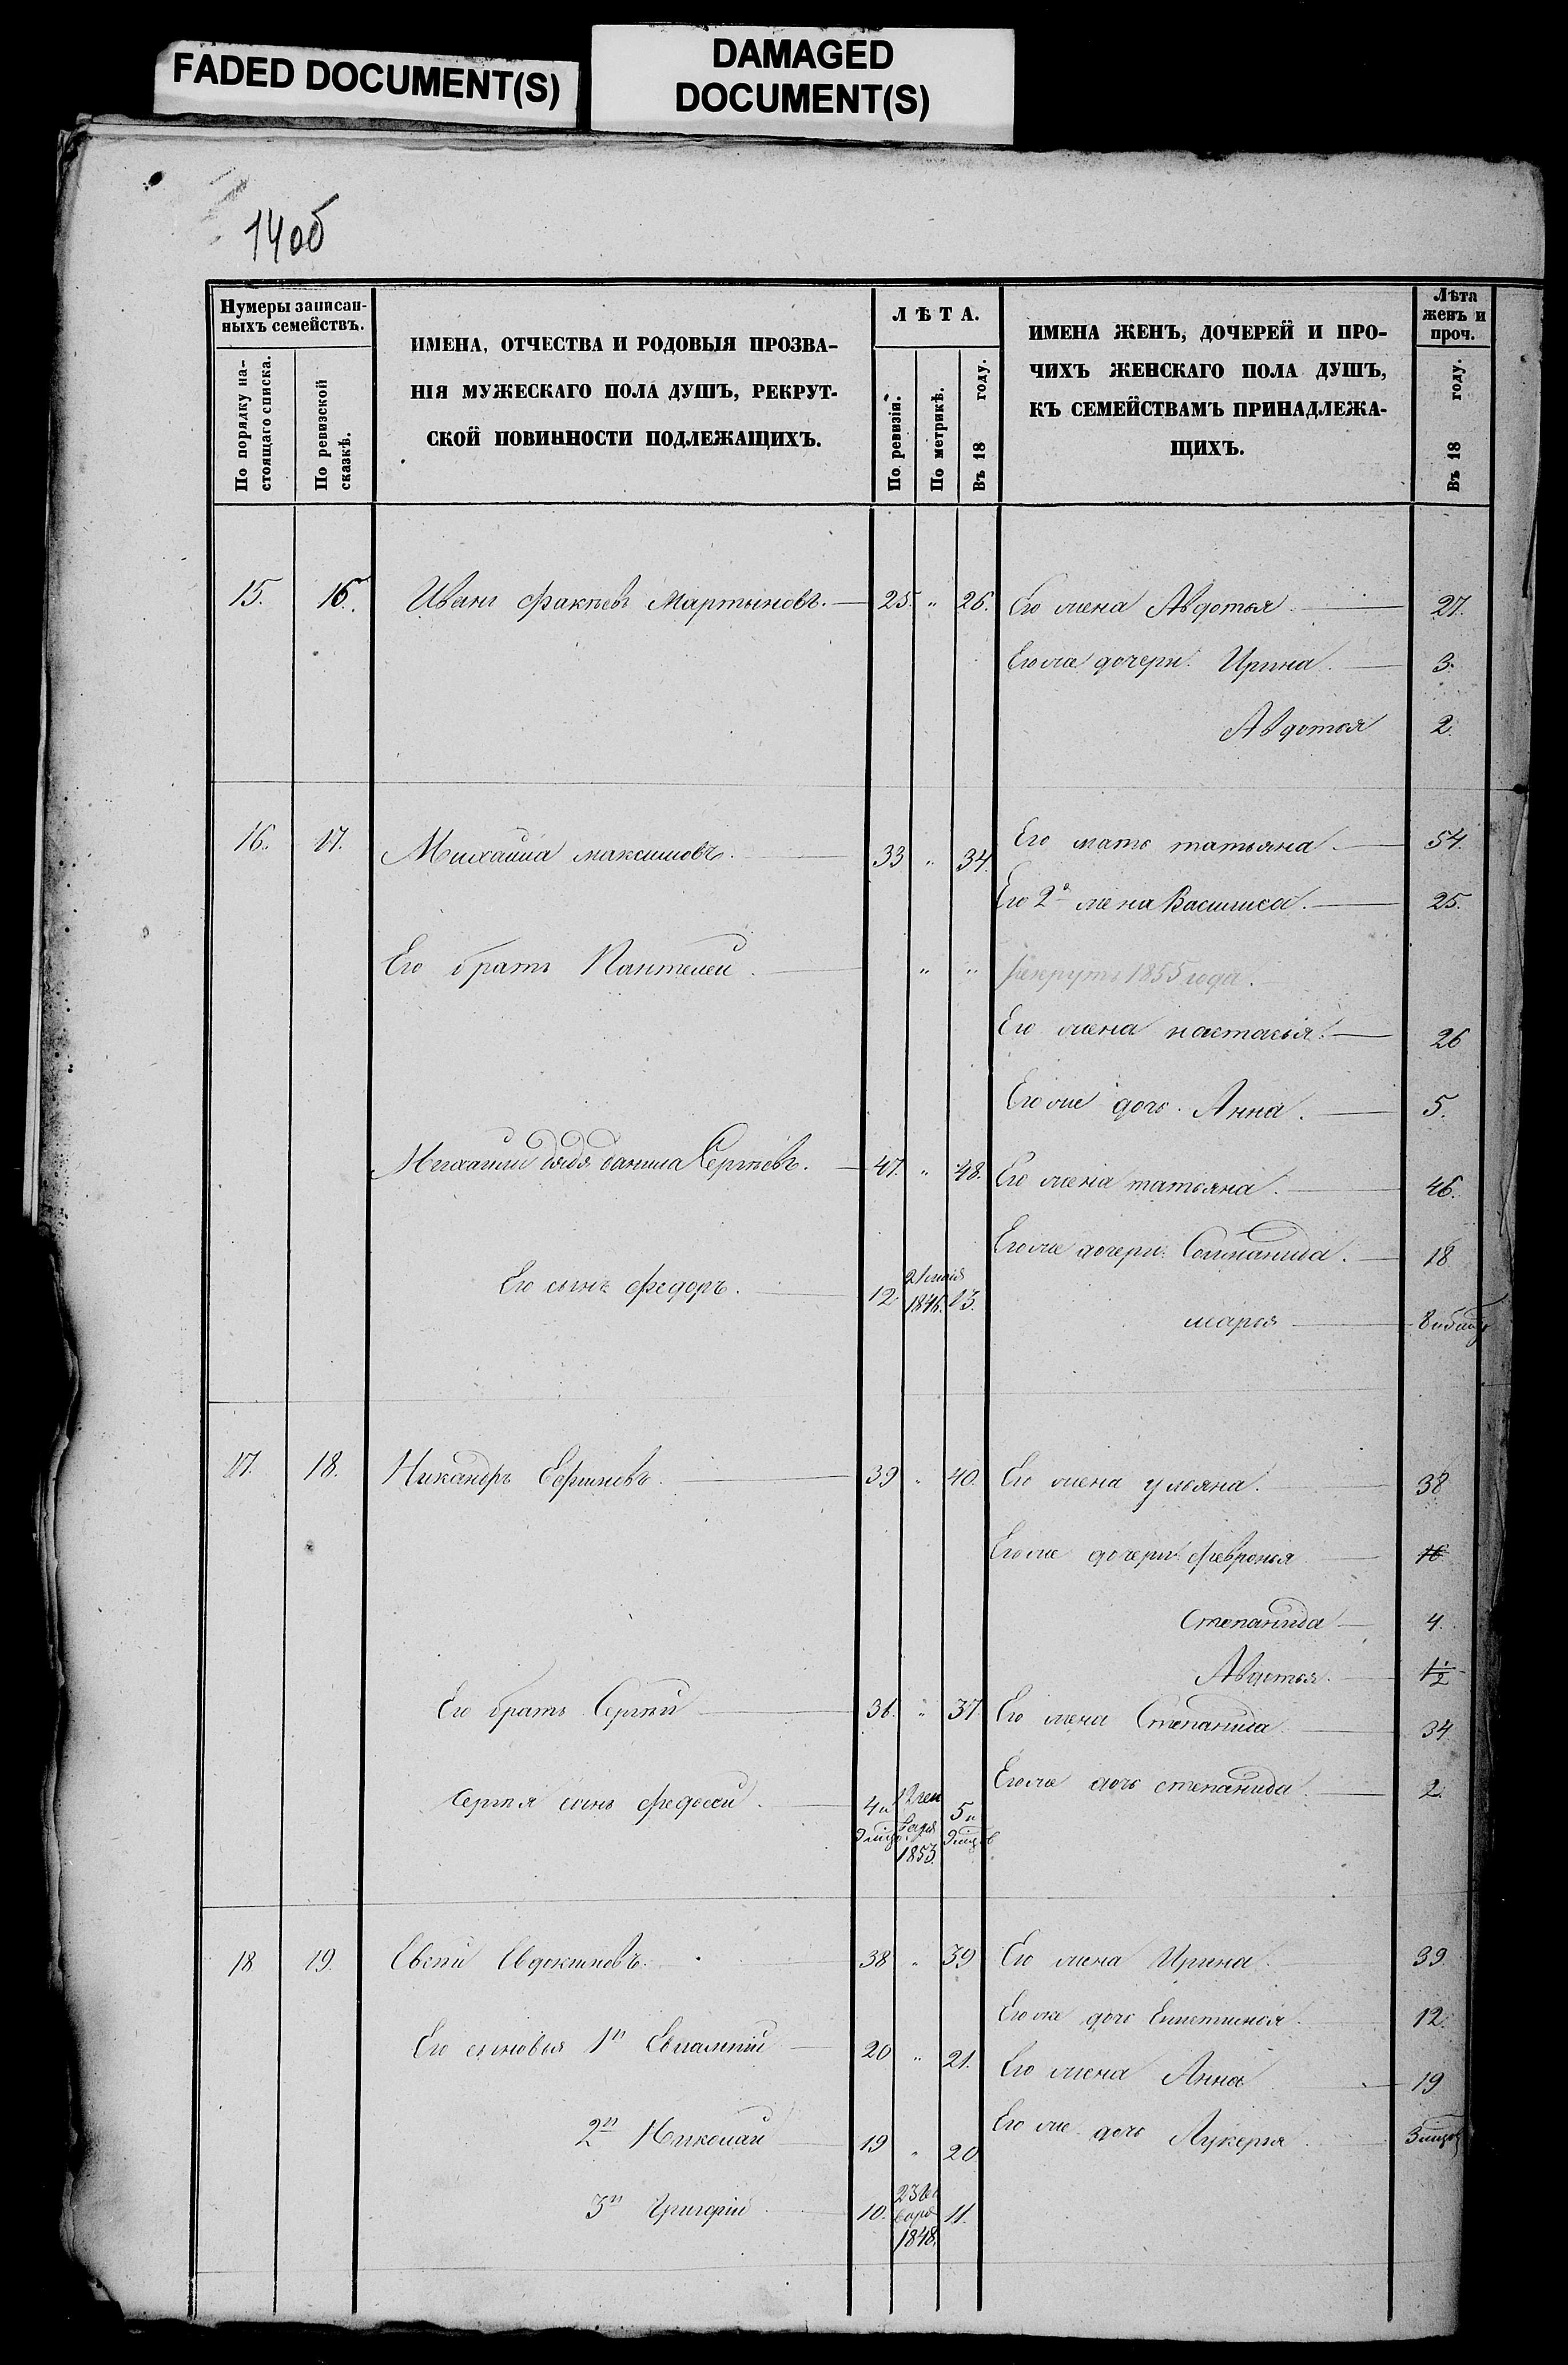 FADED DOCUMENT(S)
DAMAGED
DOCUMENT(S)
14об
Нумеры записан-
ныхъ семействъ.
По порядку на-
стоящаго списка.
По ревизской
сказкѣ.
ИМЕНА, ОТЧЕСТВА И РОДОВЫЯ ПРОЗВА-
НІЯ МУЖЕСКАГО ПОЛА ДУШЪ, РЕКРУТ-
СКОЙ ПОВИННОСТИ ПОДЛЕЖАЩИХЪ.
ЛѢТА.
По ревизіи.
По метрикѣ.
Въ 18 году.
ИМЕНА ЖЕНЪ, ДОЧЕРЕЙ И ПРО-
ЧИХЪ ЖЕНСКАГО ПОЛА ДУШЪ,
КЪ СЕМЕЙСТВАМЪ ПРИНАДЛЕЖА-
ЩИХЪ.
Лѣта
женъ и
проч.
Въ 18 году.
15. 16. Иванъ Факѣевъ Мартыновъ. 25. " 26. Его жена Авдотья 27.
Его же дочери. Ирина. 3.
Авдотья 2.
16. 17. Михайла максимовъ. 33 " 34. Его мать татьяна. 54.
Его 2я жена Василиса. 25.
Его братъ Пантелей. " " рекрутъ 1855 года.
Его жена настасья. 26
Его же дочь. Анна. 5.
Михайлы дядя данила Сергѣевъ. 47. " 48. Его жена татьяна. 46.
Его же дочери. 18
Его сынъ федоръ. 12 1846. 13.
марья 8
17. 18. Никандръ Ефимовъ. 39 " 40. Его жена ульяна. 38
Его же дочери февронья 16
степанида 4.
Авдотья. 1½
Его братъ Сергѣй 36. " 37 Его жена Степанида 34
Его же дочь степанида 2.
Сергѣя сынъ федосей. 4 и 9 мцъ 12 ген варя 1853. 5 и 9 мцъ
18 19. Евсей Евдокимовъ. 38 " 39 Его жена Ирина. 39.
Его же дочь 12.
Его сыновья 1й 20 " 21. Его жена Анна 19
2й Николай 19 " 20 Его же дочь Лукерья 3 мцов
3й Григорій 10. 23 1848. 11.